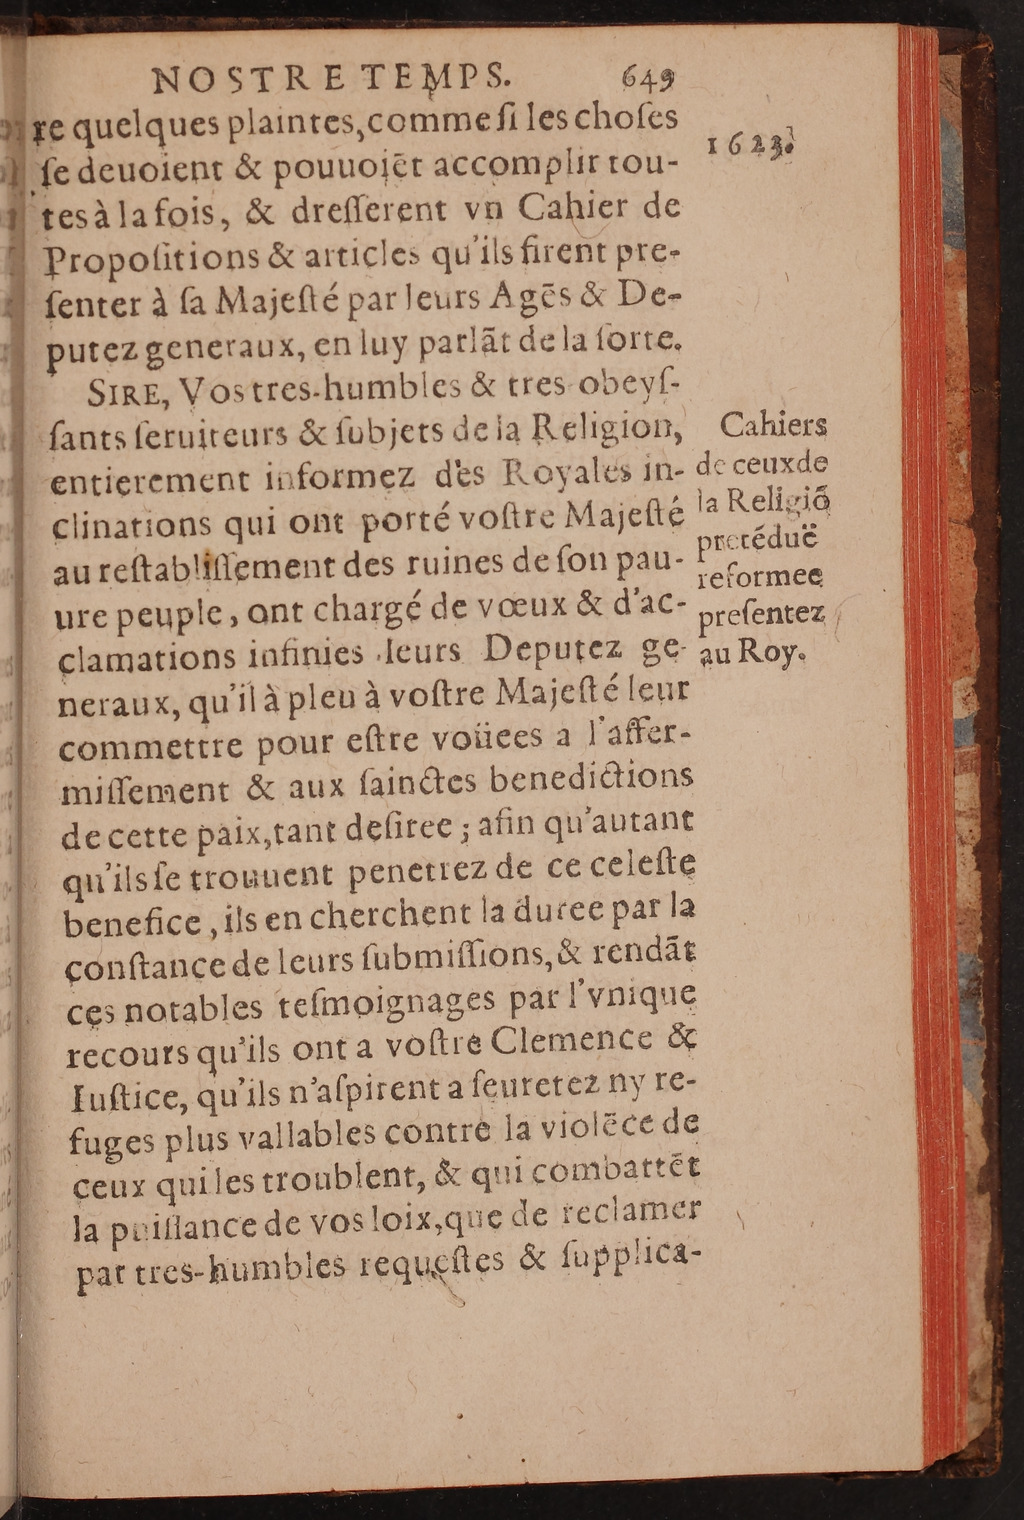 NOSTRE TEMPS. 649
re quelques plaintes, comme ſi les choſes
1623.
ſe deuoient & pouuoiẽt accomplir tou-
tes à la fois, & dreſſerent vn Cahier de
Propoſitions & articles qu'ils firent pre-
ſenter à ſa Majeſté par leurs Agẽs & De-
putez generaux, en luy parlãt de la ſorte.
SIRE, Vos tres-humbles & tres-obeyſ-
ſants ſeruiteurs & ſubjets de la Religion,
entierement informez des Royales in-
clinations qui ont porté voſtre Majeſté
au reſtabliſſement des ruines de ſon pau-
ure peuple, ont chargé de vœux & d'ac-
clamations infinies leurs Deputez ge-
neraux, qu'il à pleu à voſtre Majeſté leur
commettre pour eſtre voüees a l'affer-
miſſement & aux ſainctes benedictions
de cette paix, tant deſiree ; afin qu'autant
qu'ils ſe trouuent penetrez de ce celeſte
benefice, ils en cherchent la duree par la
conſtance de leurs ſubmiſſions, & rendãt
ces notables teſmoignages par l'vnique
recours qu'ils ont a voſtre Clemence &
Iuſtice, qu'ils n'aſpirent a ſeuretez ny re-
fuges plus vallables contre la violẽce de
ceux qui les troublent, & qui combattẽt
la puiſſance de vos loix, que de reclamer
par tres-humbles requeſtes & ſupplica-
Cahiers
de ceux de
la Religiõ
pretẽduë
reformee
preſentez
au Roy.